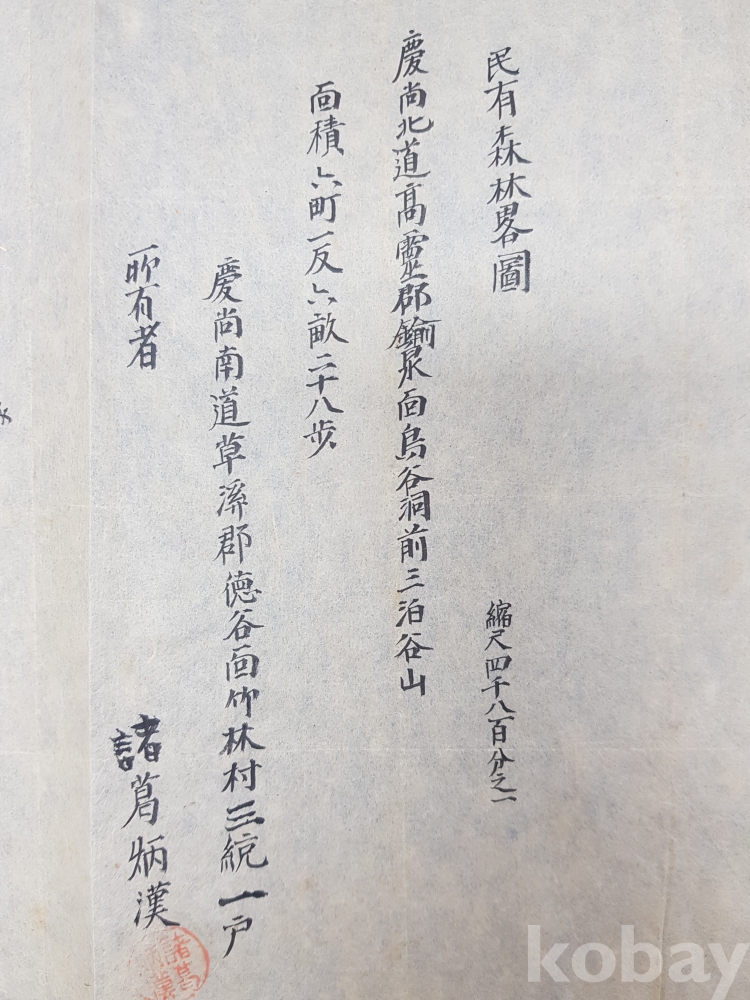 民有森林畧圖
縮尺四千八百分之一
慶尚北道高靈郡鍮泉面鳥谷洞前三泊谷山
面積六町一反六畝二十八步
慶尚南道草溪郡德谷面竹林村三統一戶
所有者
諸葛炳漢
諸葛
漢
kobay